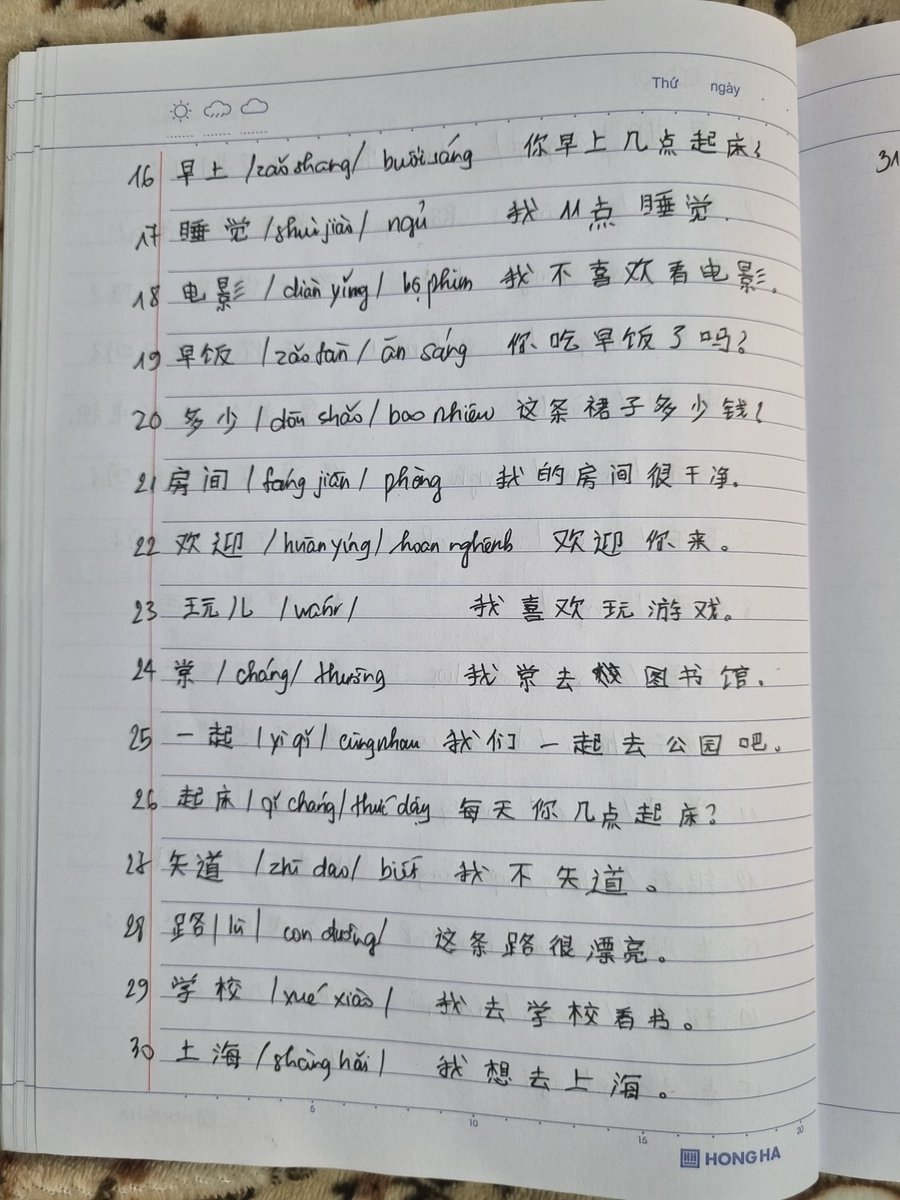 Thứ ngày
31
16 早上 /zǎoshang/ buổi sáng 你早上几点起床?
17 睡觉 /shuìjiào/ ngủ 我 11点 睡觉.
18 电影 /diànyǐng/ bộ phim 我不喜欢看电影.
19 早饭 /zǎofàn/ ăn sáng 你吃早饭了吗?
20 多少 /duō shǎo/ bao nhiêu 这条裙子多少钱?
21 房间 /fáng jiān/ phòng 我的房间很干净.
22 欢迎 /huānyíng/ hoan nghênh 欢迎你来。
23 玩儿 /wánr/ 我喜欢玩游戏。
24 常 /cháng/ thường 我常去图书馆.
25 一起 /yì qǐ/ cùng nhau 我们一起去公园吧.
26 起床 /qǐ cháng/ thức dậy 每天你几点起床?
27 知道 /zhī dao/ biết 我不知道。
28 路 /lù/ con đường/ 这条路很漂亮。
29 学校 /xué xiào/ 我去学校看书。
30 上海 /shàng hǎi/ 我想去上海。
5 10 15 20
HH HONG HA